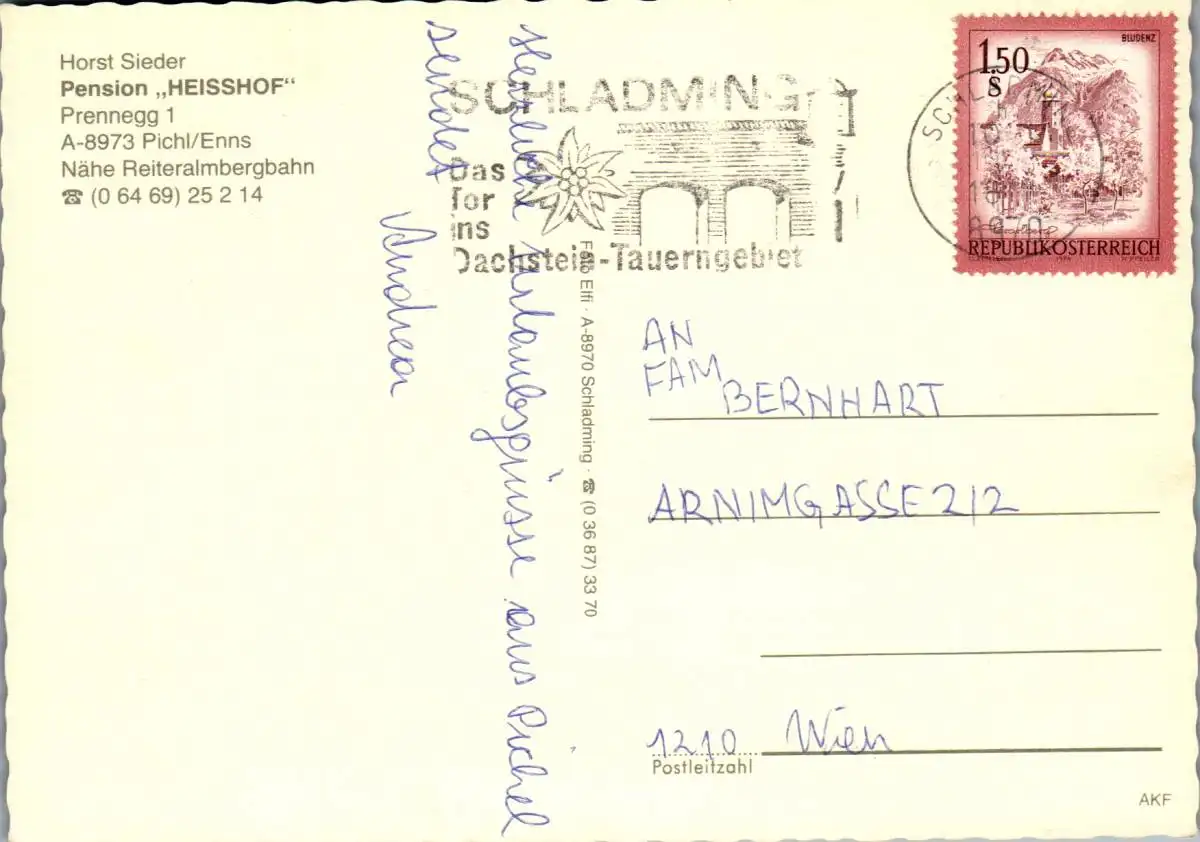 Horst Sieder
Pension „HEISSHOF“
Prennegg 1
A-8973 Pichl/Enns
Nähe Reiteralmbergbahn
☎ (0 64 69) 25 2 14
Herzliche Urlaubsgrüsse aus Pichel
sendet
Andrea
SCHLADMING
Das
Tor
ins
Dachstein-Tauerngebiet
SCHLADM
8970
BLUDENZ
1.50
S
REPUBLIK ÖSTERREICH
Foto Elfi · A-8970 Schladming · ☎ (0 36 87) 33 70
AN
FAM
BERNHART
ARNIMGASSE 2/2
1210 Wien
Postleitzahl
AKF